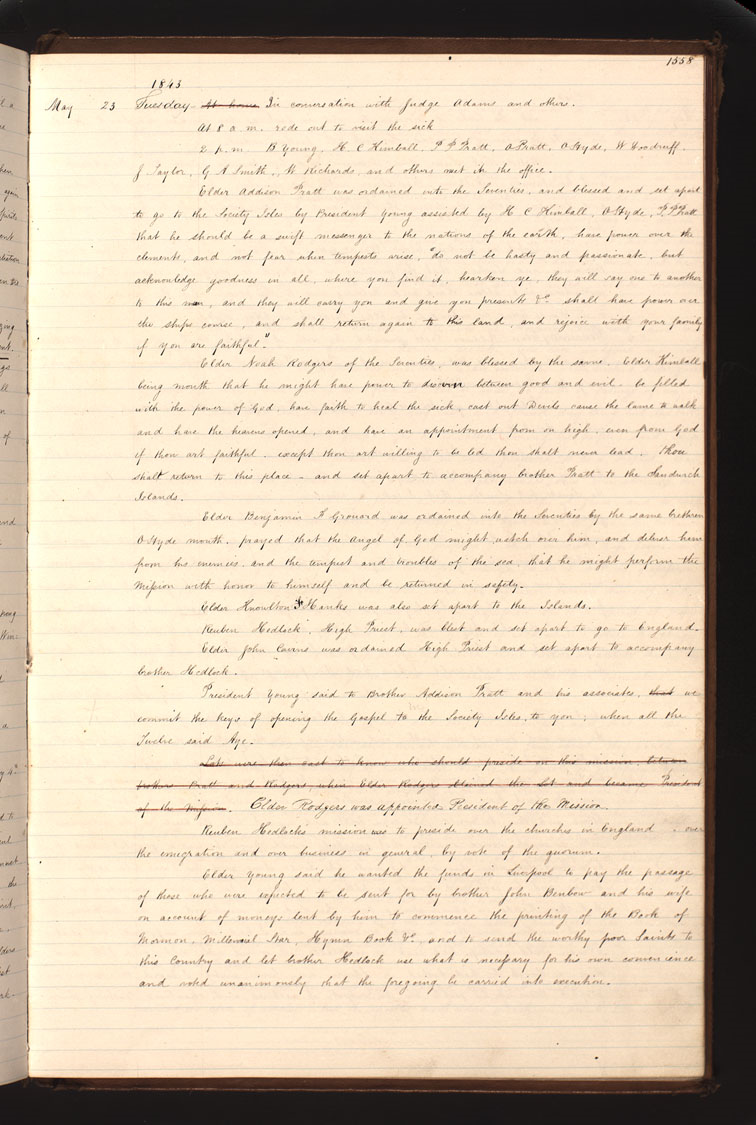 1558
1843
May 23 Tuesday. At home In conversation with Judge Adams and others.
At 8 a.m. rode out to visit the sick
2 p.m. B Young, H. C Kimball P P Pratt, O Pratt, O Hyde, W Woodruff
J Taylor, G A Smith, W Richards, and others met in the office.
Elder Addison Pratt was ordained into the Seventies, and blessed and set apart
to go to the Society Isles by President Young assisted by H C Kimball, O Hyde, P. P. Pratt
that he should be a swift messenger to the nations of the earth, have power over the
elements, and not fear when tempests arise, "do not be hasty and passionate, but
acknowledge goodness in all, where you find it, hearken ye, they will say one to another
to this man, and they will carry you and give you presents &c shall have power over
the ships course, and shall return again to this land, and rejoice with your family
if you are faithful."
Elder Noah Rodgers of the Seventies, was blessed by the same Elder Kimball
being mouth that he might have power to discern between good and evil. be filled
with the power of God, have faith to heal the sick, cast out Devils cause the lame to walk
and have the heavens opened, and have an appointment from on high, even from God
if thou art faithful. except thou art willing to be led thou shalt never lead. Thou
shalt return to this place – and set apart to accompany brother Pratt to the Sandwich
Islands.
Elder Benjamin F Grouard was ordained into the Seventies by the same brethren
O Hyde mouth. prayed that the angel of God might watch over him, and deliver him
from his enemies and the tempest and troubles of the sea, that he might perform the
Mission with honor to himself and be returned in safety.
Elder Knowlton F Hanks was also set apart to the Islands.
Reuben Hedlock, High Priest, was blest and set apart to go to England.
Elder John Cairns was ordained High Priest and set apart to accompany
brother Hedlock.
President Young said to Brother Addison Pratt and his associates, that we
commit the keys of opening the Gospel to the Society Isles, to you; when all the
Twelve said Aye.
Lots were then cast to know who should preside on this mission between
brothers Pratt and Rodgers, when Elder Rodgers obtained the Lot and became President
of the Mission. Elder Rodgers was appointed President of the Mission.
Reuben Hedlock's mission was to preside over the churches in England . over
the emigration and over business in general, by vote of the quorum.
Elder Young said he wanted the funds in Liverpool to pay the passage
of those who were expected to be sent for by brother John Benbow and his wife
on account of moneys lent by him to commence the printing of the Book of
Mormon, Millennial Star, Hymn Book &c. and to send the worthy poor Saints to
this Country and let brother Hedlock use what is necessary for his own convenience
and voted unanimously that the foregoing be carried into execution.